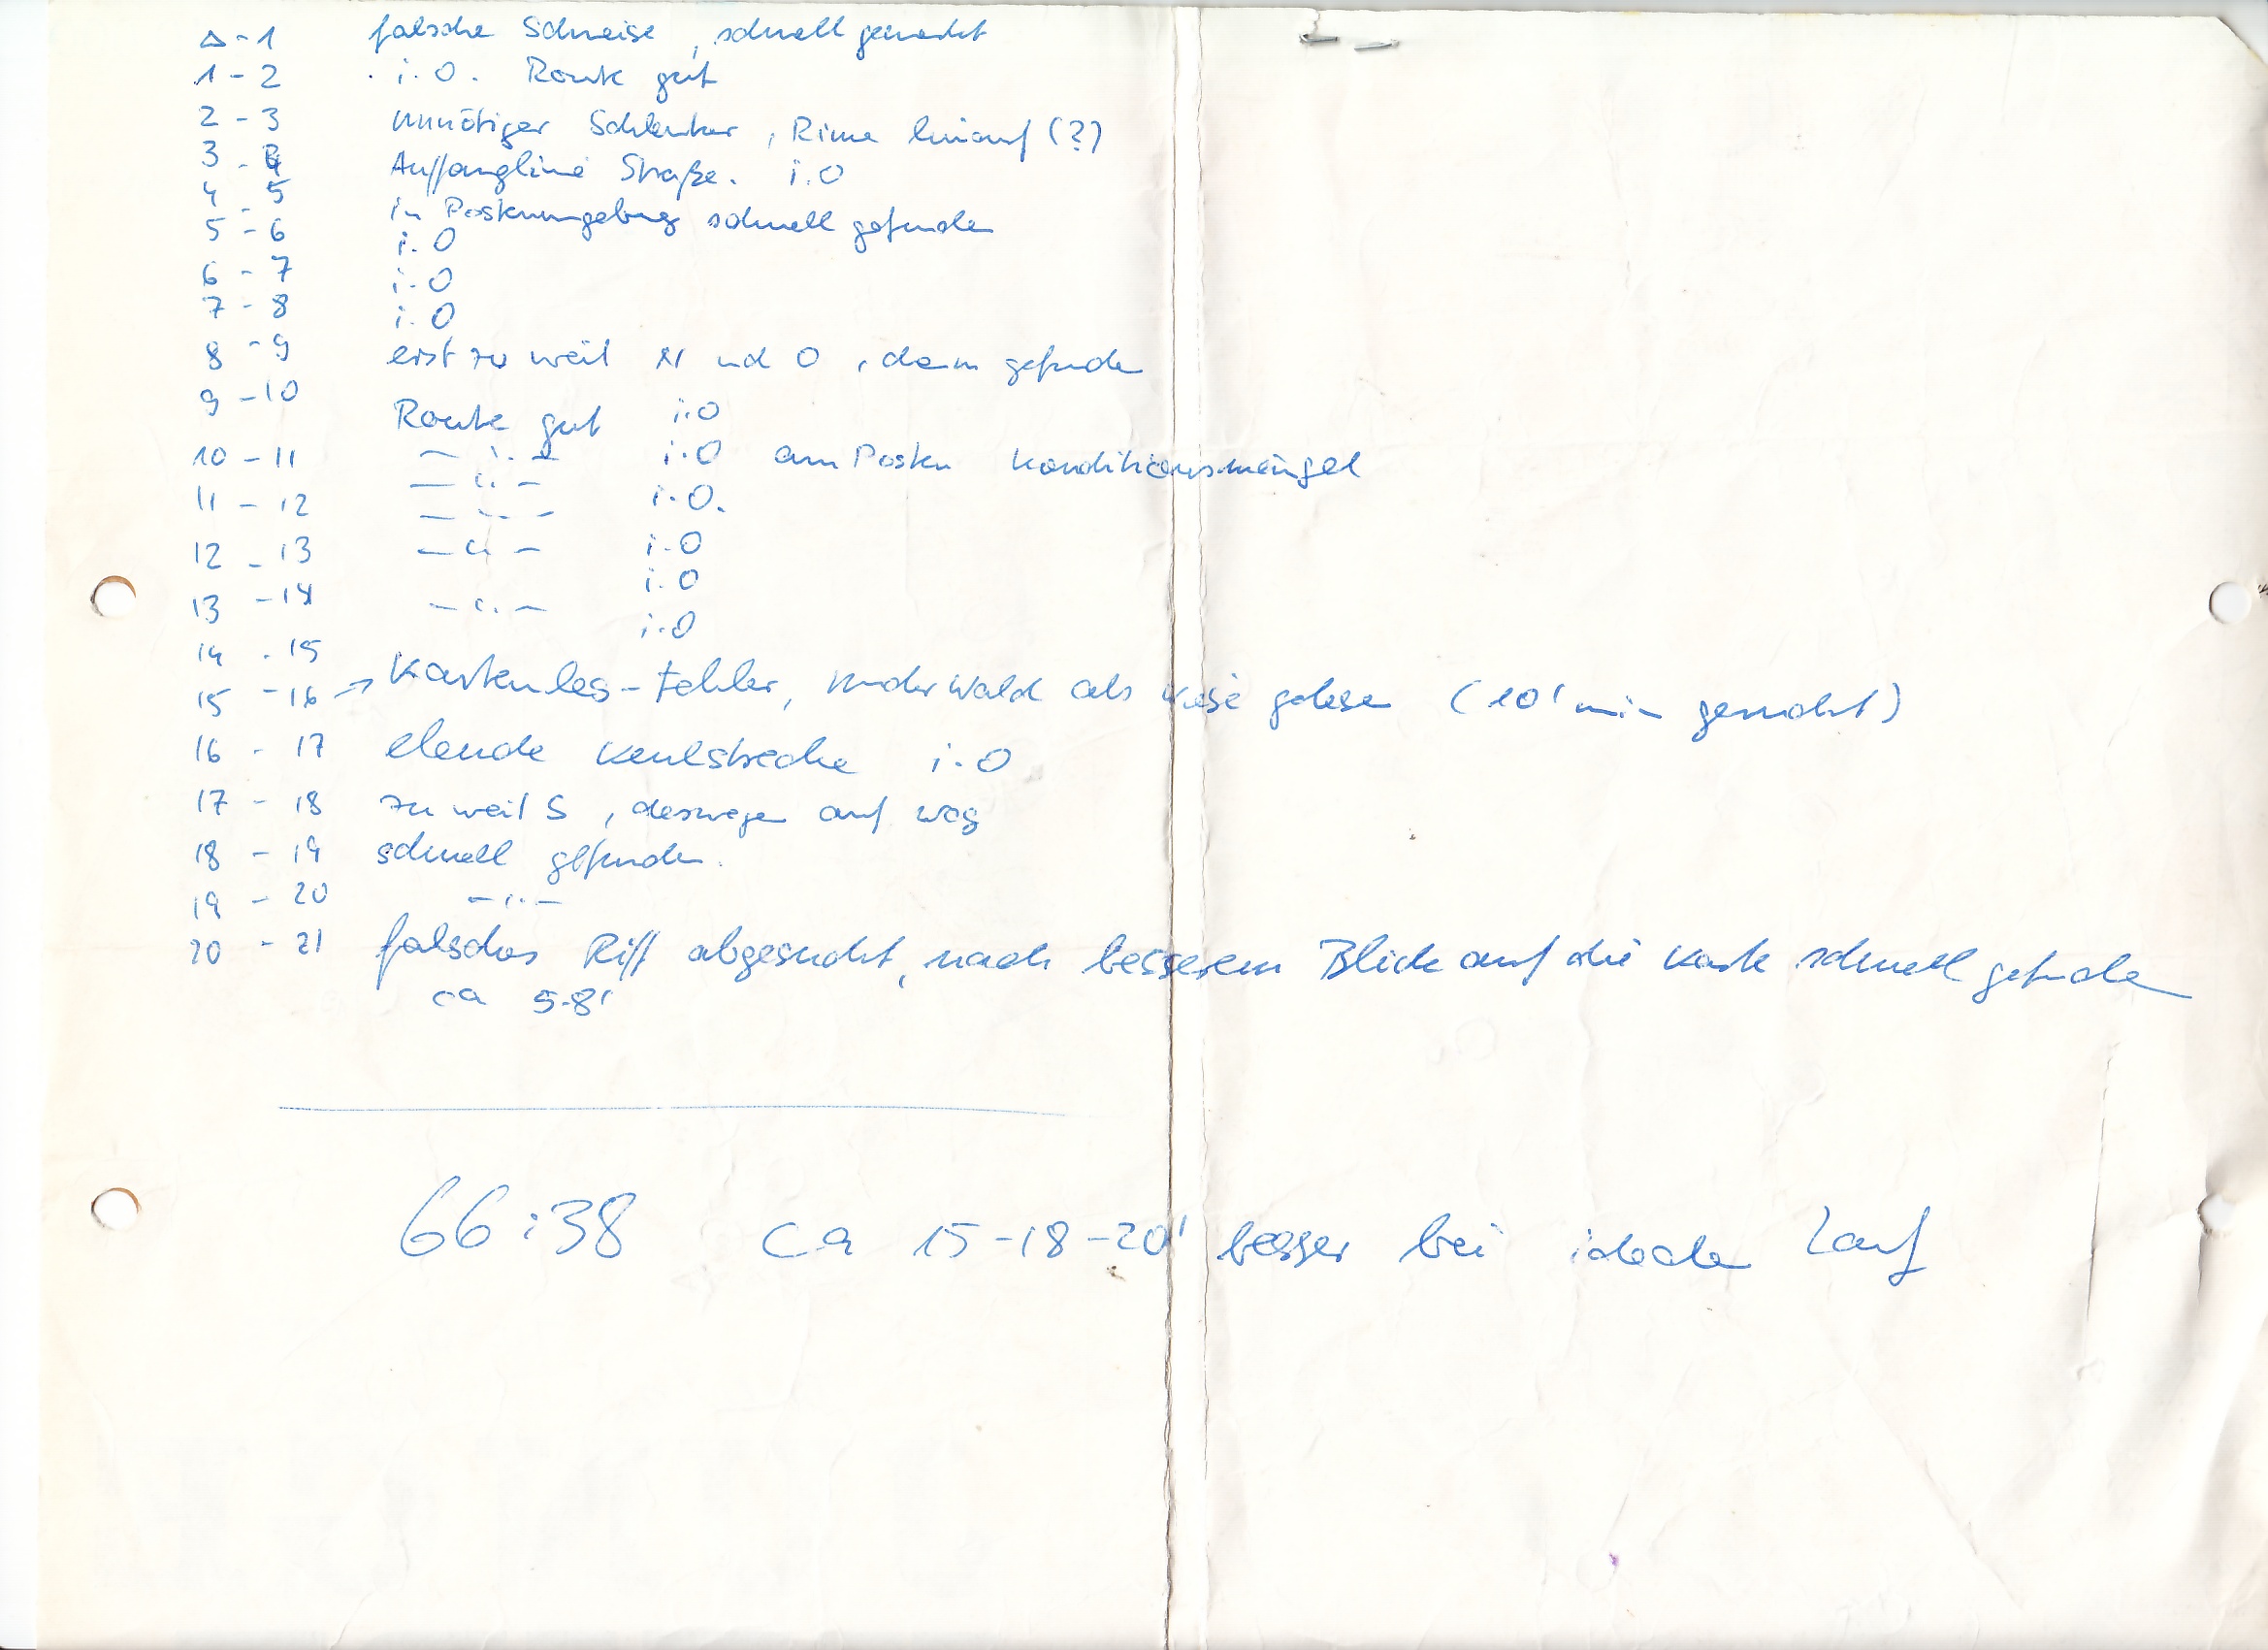 △-1 falsche Schneise, schnell gemerkt
1-2 i.O. Route gut
2-3 unnötiger Schlenker, Rinne hinauf (?)
3-4 Auffanglinie Straße. i.O
4-5 in Postenumgebung schnell gefunden
5-6 i.O
6-7 i.O
7-8 i.O
8-9 erst zu weit N und O, dann gefunden
9-10 Route gut i.O
10-11 —"— i.O am Posten Konditionsmängel
11-12 —"— i.O.
12-13 —"— i.O
13-14 —"— i.O
14-15 —"— i.O
15-16 → Kartenles-Fehler, Wald als Wiese gelesen (10' min gesucht)
16-17 elende Keulstrecke i.O
17-18 zu weit S, deswegen auf Weg
18-19 schnell gefunden.
19-20 —"—
20-21 falsches Riff abgesucht, nach besserem Blick auf die Karte schnell gefunden
ca 5-8'
66:38 ca 15-18-20' besser bei idealen Lauf